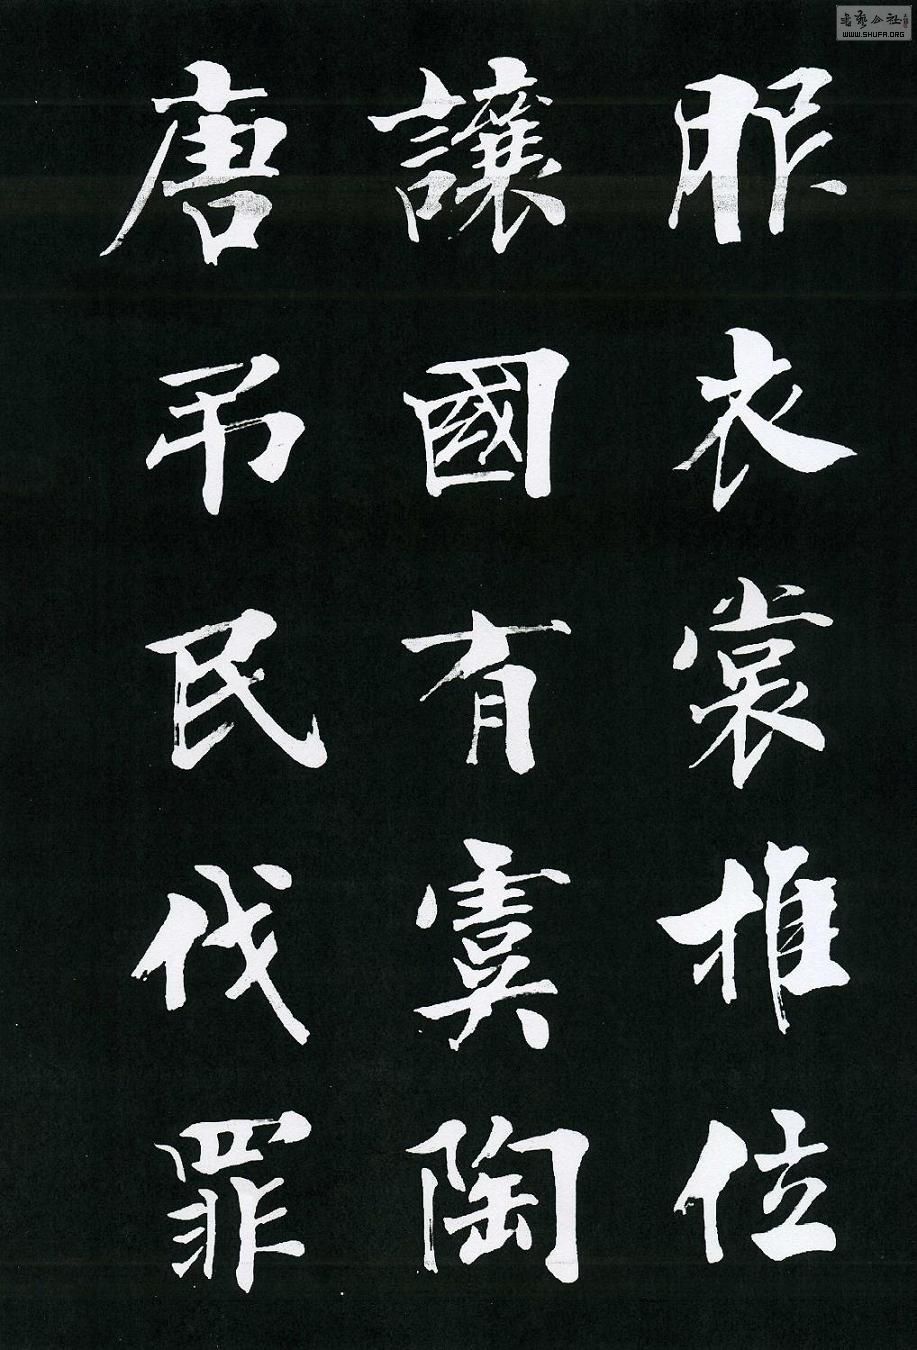 服衣裳推位
讓國有虞陶
唐弔民伐罪
WWW.SHUFA.ORG